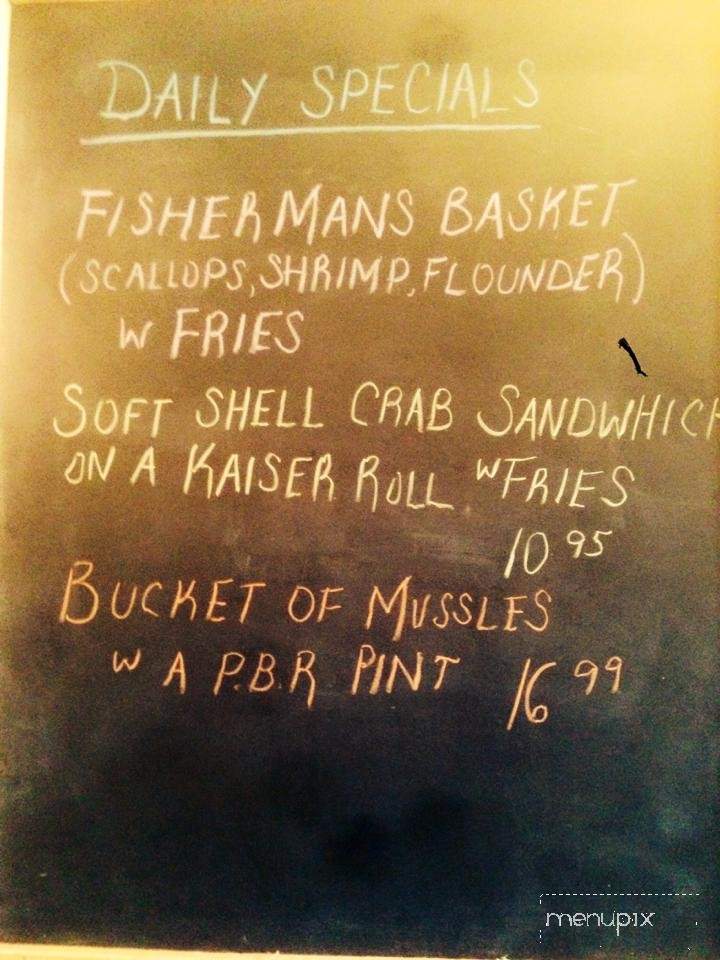 DAILY SPECIALS
FISHERMANS BASKET
(SCALLOPS, SHRIMP, FLOUNDER)
W FRIES
SOFT SHELL CRAB SANDWHICH
ON A KAISER ROLL W FRIES
10 95
BUCKET OF MUSSLES
W A P.B.R PINT 16 99
menupix